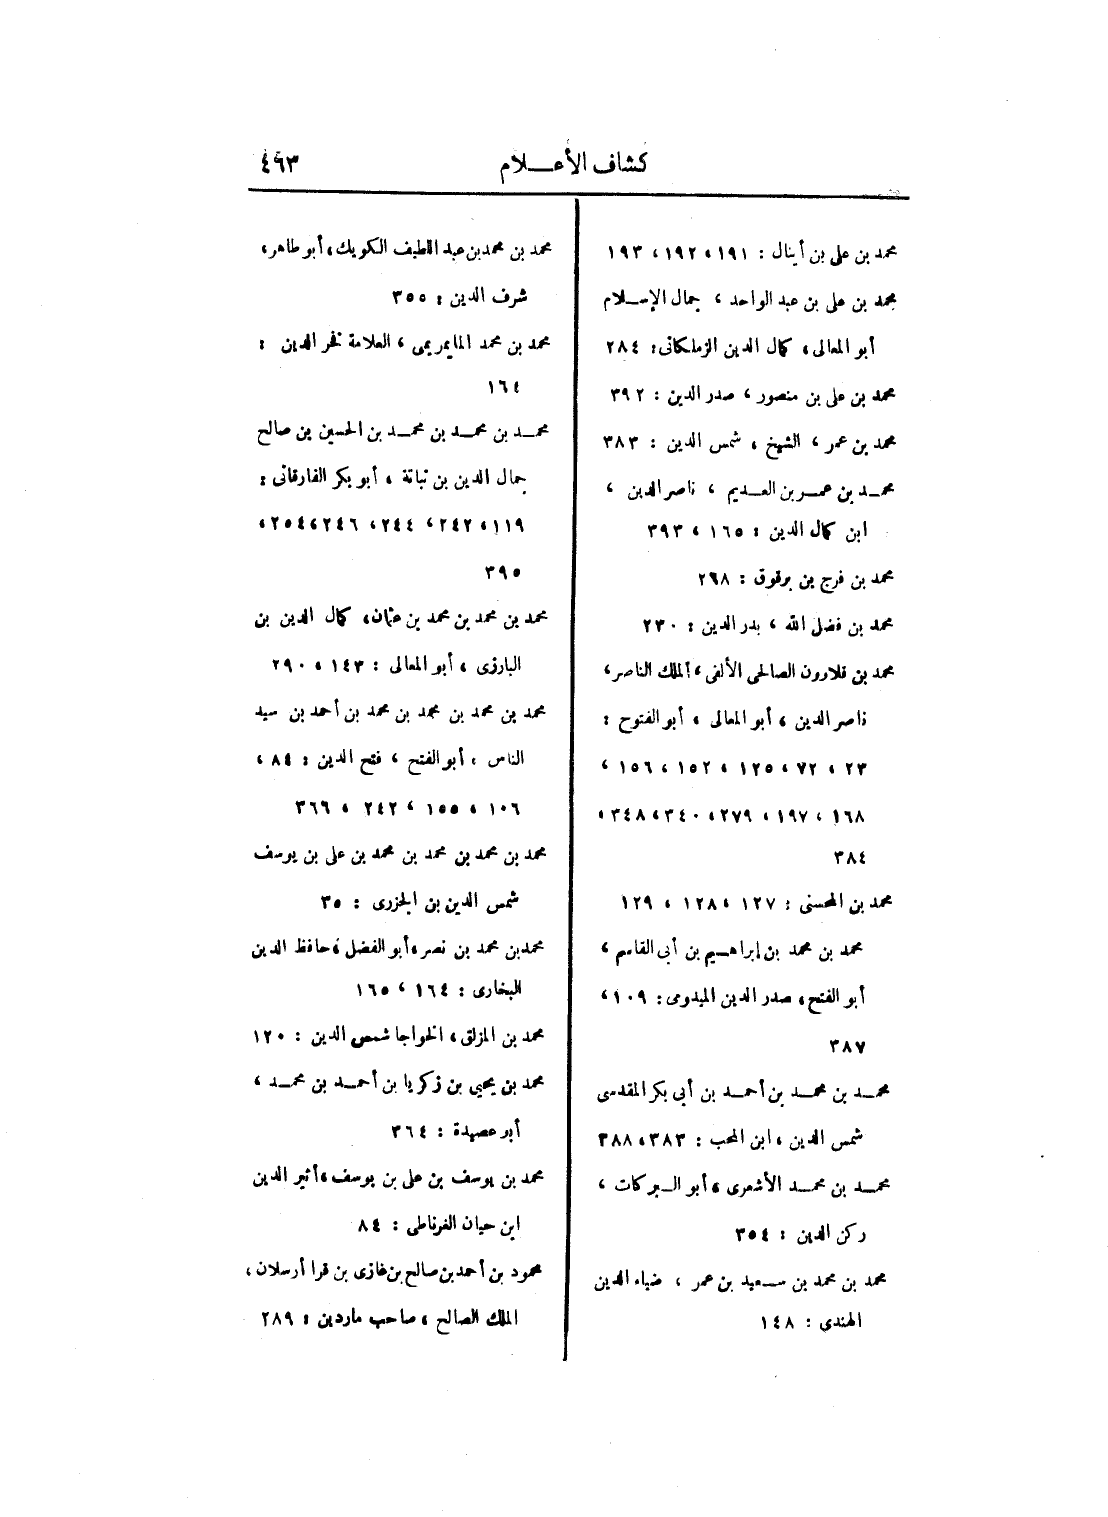 كشاف الأعـــلام
٤٩٣
محمد بن على بن أينال : ١٩١ ، ١٩٢ ، ١٩٣
محمد بن على بن عبد الواحد ، جمال الإسـلام
أبو المعالى، كمال الدين الزملكانى: ٢٨٤
محمد بن على بن منصور ، صدر الدين : ٣٩٢
محمد بن عمر ، الشيخ ، شمس الدين : ٣٨٣
محمـد بن عمـر بن العـديم ، ناصر الدين ،
ابن كمال الدين : ١٦٥ ، ٣٩٣
محمد بن فرج بن برقوق : ٢٦٨
محمد بن فضل الله ، بدر الدين : ٢٣٠
محمد بن قلاوون الصالحى الألفى ، الملك الناصر،
ناصر الدين ، أبو المعالى ، أبو الفتوح :
٢٣ ، ٧٢ ، ١٢٥ ، ١٥٢ ، ١٥٦ ،
١٦٨ ، ١٩٧ ، ٢٧٩ ، ٣٤٠ ، ٣٤٨ ،
٣٨٤
محمد بن المحسنى : ١٢٧ ، ١٢٨ ، ١٢٩
محمد بن محمد بن إبراهـيم بن أبى القاسم ،
أبو الفتح، صدر الدين الميدومى: ١٠٩ ،
٣٨٧
محمـد بن محمـد بن أحمـد بن أبى بكر المقدسى
شمس الدين ، ابن المحب : ٣٨٣ ، ٣٨٨
محمـد بن محمـد الأشعرى ، أبو الـبركات ،
ركن الدين : ٣٥٤
محمد بن محمد بن سـعيد بن عمر ، ضياء الدين
الهندى : ١٤٨
محمد بن محمد بن عبد اللطيف الكويك، أبو طاهر،
شرف الدين : ٣٥٥
محمد بن محمد المايمريمى ، العلامة فخر الدين :
١٦٤
محمـد بن محمـد بن محمـد بن الحسين بن صالح
جمال الدين بن نباتة ، أبو بكر الفارقانى :
١١٩ ، ٢٤٢ ، ٢٤٤ ، ٢٤٦ ، ٢٥٤ ،
٣٩٥
محمد بن محمد بن محمد بن عثمان، كمال الدين بن
البارزى ، أبو المعالى : ١٤٣ ، ٢٩٠
محمد بن محمد بن محمد بن محمد بن أحمد بن سيد
الناس ، أبو الفتح ، فتح الدين : ٨٤ ،
١٠٦ ، ١٥٥ ، ٢٤٢ ، ٣٦٦
محمد بن محمد بن محمد بن محمد بن على بن يوسف
شمس الدين بن الجزرى : ٣٥
محمد بن محمد بن نصر، أبو الفضل ، حافظ الدين
البخارى : ١٦٤ ، ١٦٥
محمد بن المزلق ، الخواجا شمس الدين : ١٢٠
محمد بن يحيى بن زكريا بن أحمـد بن محمـد ،
أبو عصيدة : ٣٦٤
محمد بن يوسف بن على بن يوسف ، أثير الدين
ابن حيان الغرناطى : ٨٤
محمود بن أحمد بن صالح بن غازى بن قرا أرسلان ،
الملك الصالح ، صاحب ماردين : ٢٨٩